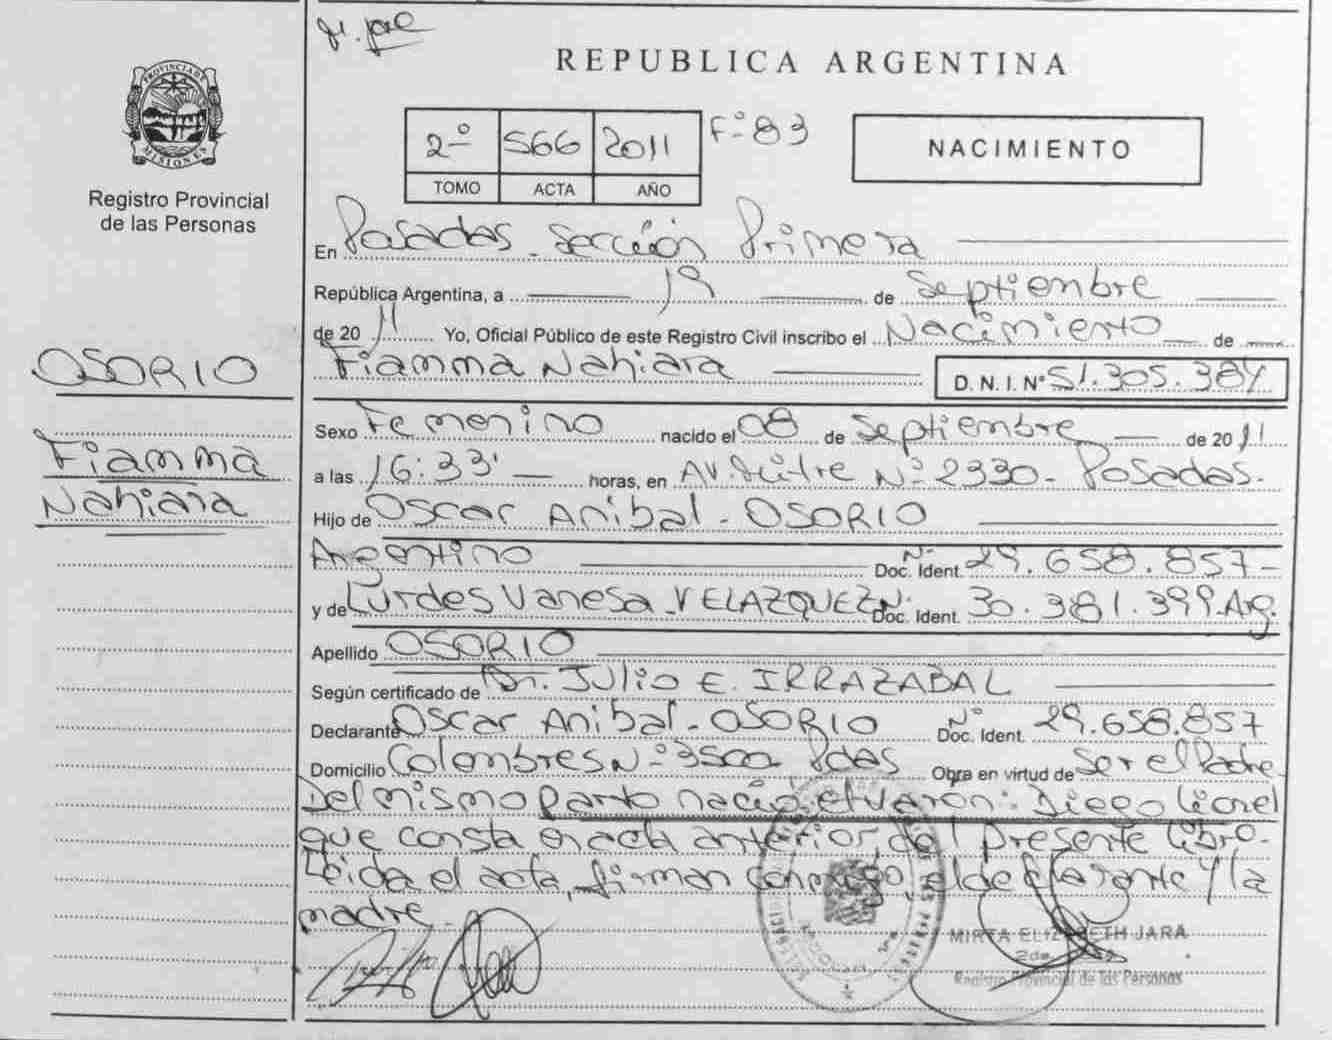 REPUBLICA ARGENTINA
PROVINCIA DE MISIONES
Registro Provincial
de las Personas
2º 566 2011 Fº 83
TOMO ACTA AÑO
NACIMIENTO
En Posadas - Sección Primera
República Argentina, a 19 de Septiembre
de 2011 Yo, Oficial Público de este Registro Civil inscribo el Nacimiento de
Fiamma Nahiara D.N.I. Nº 51.305.384
OSORIO
Fiamma
Nahiara
Sexo Femenino nacido el 08 de Septiembre de 2011
a las 16:33' horas, en Av. Mitre Nº 2330 - Posadas.
Hijo de Oscar Anibal - OSORIO
Argentino Nº Doc. Ident. 29.658.857-
y de Lurdes Vanesa - VELAZQUEZ Nº Doc. Ident. 30.381.399. Arg.
Apellido OSORIO
Según certificado de Dr. JULIO E. IRRAZABAL
Declarante Oscar Anibal - OSORIO Nº Doc. Ident. 29.658.857
Domicilio Colombres Nº 3500 Pdas Obra en virtud de Ser el Padre
Del mismo parto nació el varon: Diego Lionel
que consta en acta anterior, del presente libro.
Leida el acta, firman conmigo, el declarante y la
madre.
MIRTA ELIZABETH JARA
Registro Provincial de las Personas